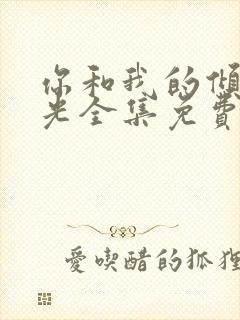 你和我的傾
光全集免費
愛喫醋的狐狸